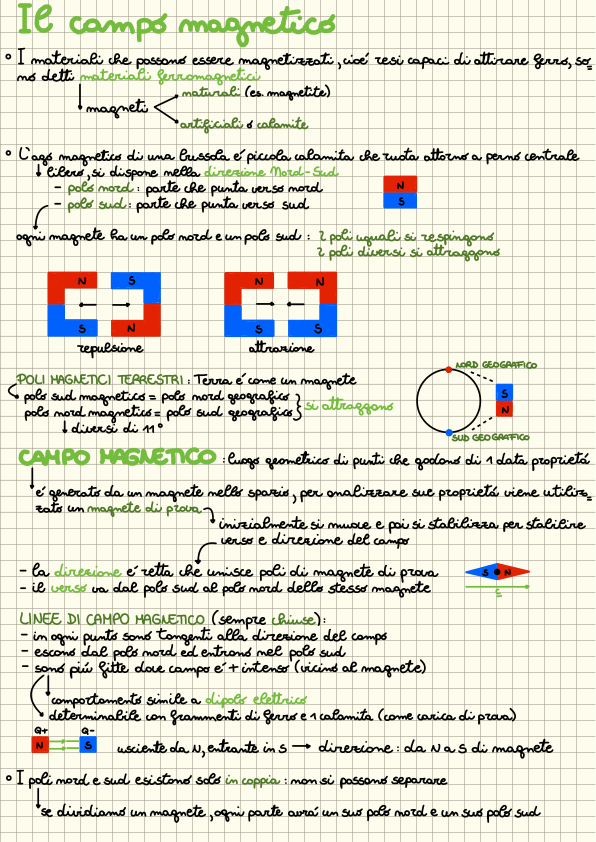 Il campo magnetico
° I materiali che possono essere magnetizzati, cioé resi capaci di attirare ferro, so=
no detti materiali ferromagnetici
naturali (es. magnetite)
magneti
artificiali o calamite
° L'ago magnetico di una bussola é piccola calamita che ruota attorno a perno centrale
libero, si dispone nella direzione Nord-Sud
- polo nord: parte che punta verso nord
N
- polo sud: parte che punta verso sud
S
ogni magnete ha un polo nord e un polo sud: 2 poli uguali si respingono
2 poli diversi si attraggono
N S N N
S N S S
repulsione attrazione
POLI MAGNETICI TERRESTRI: Terra é come un magnete
NORD GEOGRAFICO
polo sud magnetico = polo nord geografico
si attraggono
polo nord magnetico = polo sud geografico
S
N
diversi di 11°
SUD GEOGRAFICO
CAMPO MAGNETICO: luogo geometrico di punti che godono di 1 data proprietá
é generato da un magnete nello spazio, per analizzare sue proprietá viene utiliz=
zato un magnete di prova
inizialmente si muove e poi si stabilizza per stabilire
verso e direzione del campo
- la direzione é retta che unisce poli di magnete di prova
S N
- il verso va dal polo sud al polo nord dello stesso magnete
LINEE DI CAMPO MAGNETICO (sempre chiuse):
- in ogni punto sono tangenti alla direzione del campo
- escono dal polo nord ed entrano nel polo sud
- sono piú fitte dove campo é + intenso (vicino al magnete)
comportamento simile a dipolo elettrico
determinabile con frammenti di ferro e 1 calamita (come carica di prova)
Q+ Q-
N S uscente da N, entrante in S → direzione: da N a S di magnete
° I poli nord e sud esistono solo in coppia: non si possono separare
se dividiamo un magnete, ogni parte avrá un suo polo nord e un suo polo sud